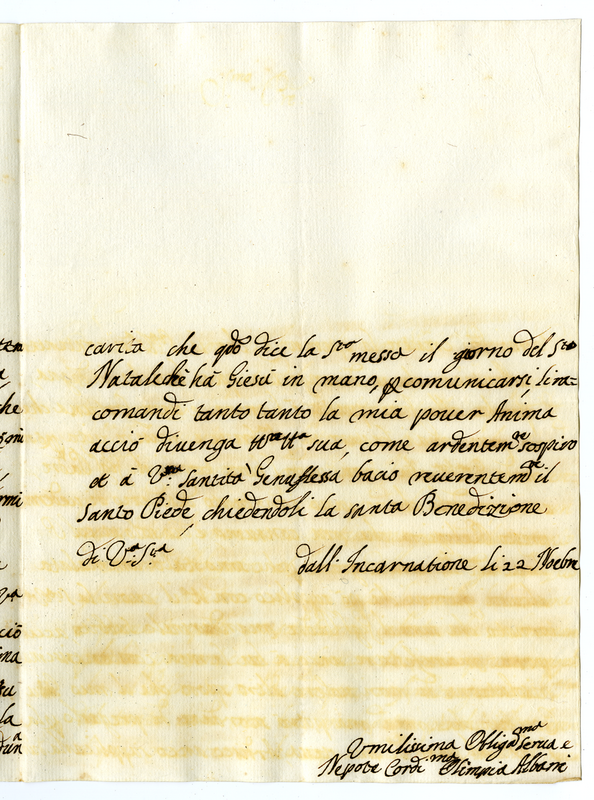 carità che qdo dice la Sta messa il giorno del Sto
Natale chè hà Giesù in mano, p comunicarsi, li ra=
comandi tanto tanto la mia pouer Anima
acciò divenga tta tta sua, come ardentemte sospiro
et à Vra Santità Genuflessa bacio reuerentemte il
Santo Piede, chiedendoli la santa Benedizione
di Va Sta
dall Incarnatione li 22 Noebre
Vmilissima Obligma Serua e
Nepote Cordima Olimpia Albani
che
rmi
Va
ciò
la